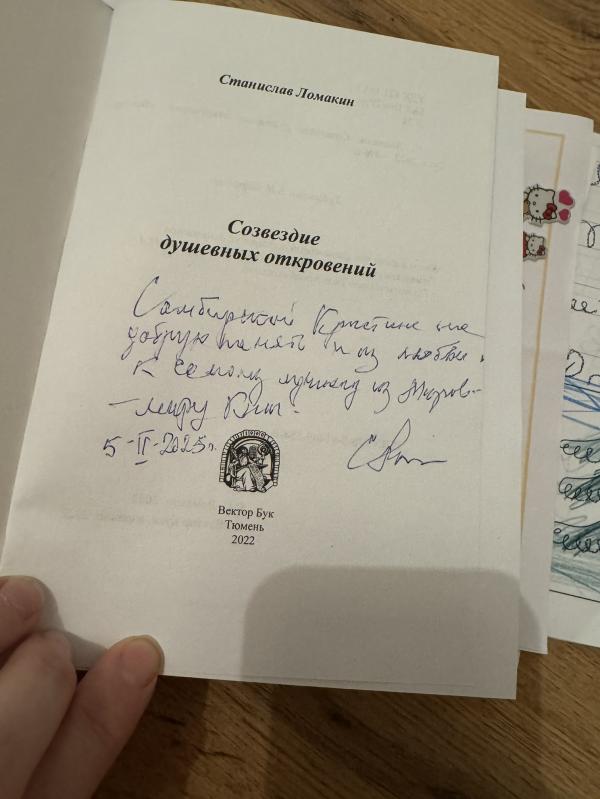 Станислав Ломакин
Созвездие
душевных откровений
Самбирской Кристине на
добрую память и из любви
к самому лучшему из миров –
– миру книг.
5-II-2025г.
Вектор Бук
Тюмень
2022